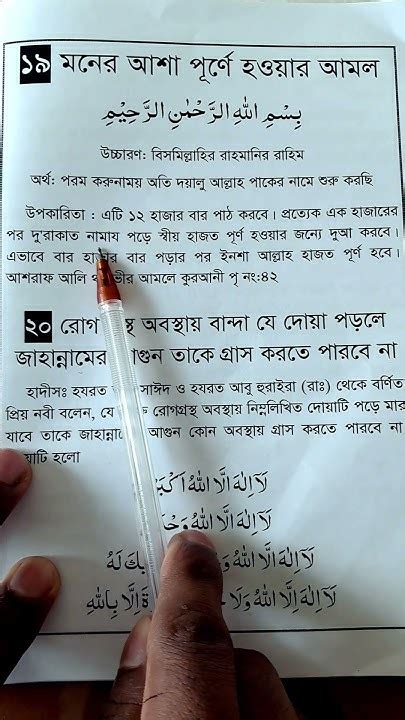 ১৯ মনের আশা পূর্ণে হওয়ার আমল
بِسْمِ اللهِ الرَّحْمٰنِ الرَّحِيْمِ
উচ্চারণ: বিসমিল্লাহির রাহমানির রাহিম
অর্থ: পরম করুনাময় অতি দয়ালু আল্লাহ পাকের নামে শুরু করছি
উপকারিতা : এটি ১২ হাজার বার পাঠ করবে। প্রত্যেক এক হাজারের
পর দু'রাকাত নামায পড়ে স্বীয় হাজত পূর্ণ হওয়ার জন্যে দুআ করবে।
এভাবে বার হাজার বার পড়ার পর ইনশা আল্লাহ হাজত পূর্ণ হবে।
আশরাফ আলি ভীর আমলে কুরআনী পৃ নং:৪২
২০ রোগ স্থ অবস্থায় বান্দা যে দোয়া পড়লে
জাহান্নামের আগুন তাকে গ্রাস করতে পারবে না
হাদীসঃ হযরত সাঈদ ও হযরত আবু হুরাইরা (রাঃ) থেকে বর্ণিত
প্রিয় নবী বলেন, যে রোগগ্রস্থ অবস্থায় নিম্নলিখিত দোয়াটি পড়ে মার
যাবে তাকে জাহান্না আগুন কোন অবস্থায় গ্রাস করতে পারবে না
য়াটি হলো
لَآ اِلٰهَ اِلَّا اللهُ اَكْبَ
لَآ اِلٰهَ اِلَّا اللهُ وَحْ
لَآ اِلٰهَ اِلَّا اللهُ وَ يْكَ لَهُ
لَآ اِلٰهَ اِلَّا اللهُ وَلَا ةَ اِلَّا بِاللهِ